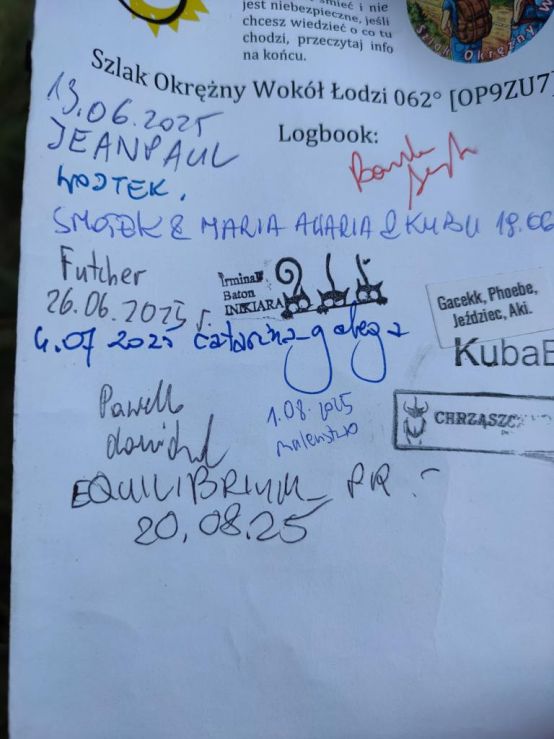 jest niebezpieczne, jeśli
chcesz wiedzieć o co tu
chodzi, przeczytaj info
na końcu.
Szlak Okrężny W
Szlak Okrężny Wokół Łodzi 062° [OP9ZU7]
Logbook:
13.06.2025
JEANPAUL
WOJTEK.
& MARIA & KUBU 18.06
Futcher
26.06.2025 r.
Irmina
Baton
INKIARA
Gacekk, Phoebe,
Jeździec, Aki.
4.07 2025 catarina_galega
KubaB
Pawello
dawid
1.08.2025
maleństwo
CHRZĄSZCZ
EQUILIBRIUM_PR.
20.08.25